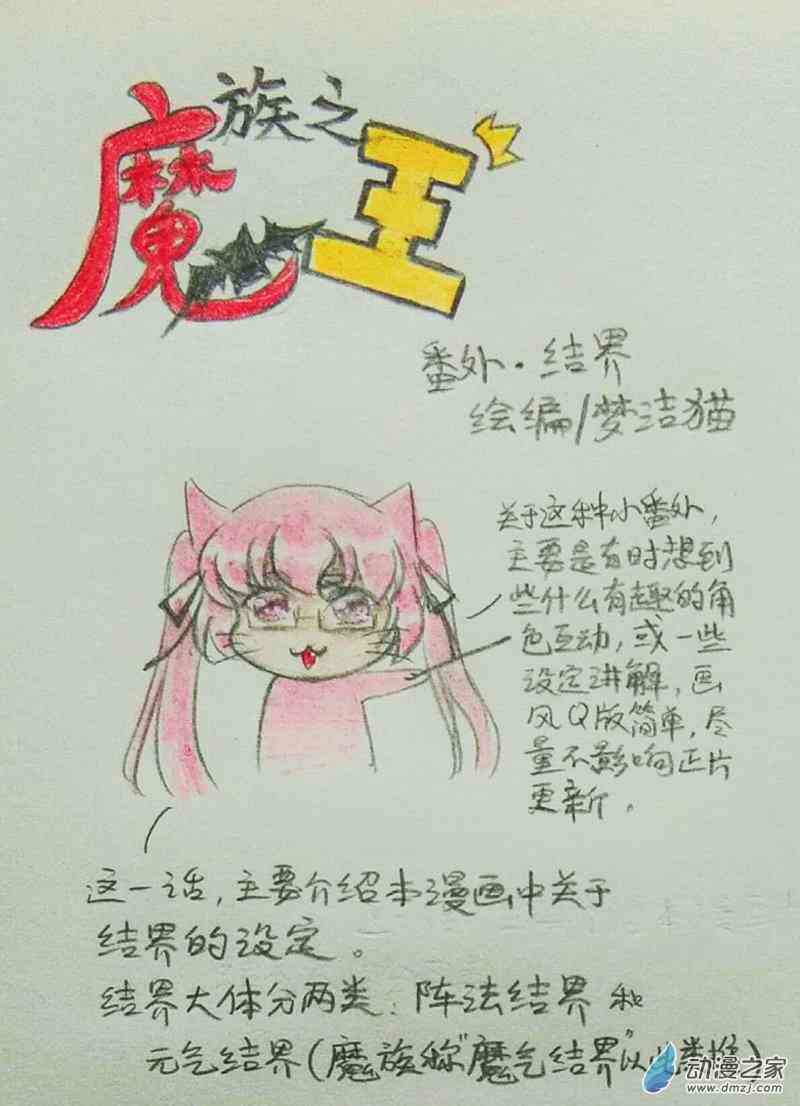 魔族之王
番外·结界
绘编/梦洁猫
关于这种小番外，
主要是有时想到
些什么有趣的角
色互动，或一些
设定讲解，画
风Q版简单，尽
量不影响正片
更新。
这一话，主要介绍本漫画中关于
结界的设定。
结界大体分两类：阵法结界和
元气结界（魔族称“魔气结界”以此类推）
动漫之家
www.dmzj.com